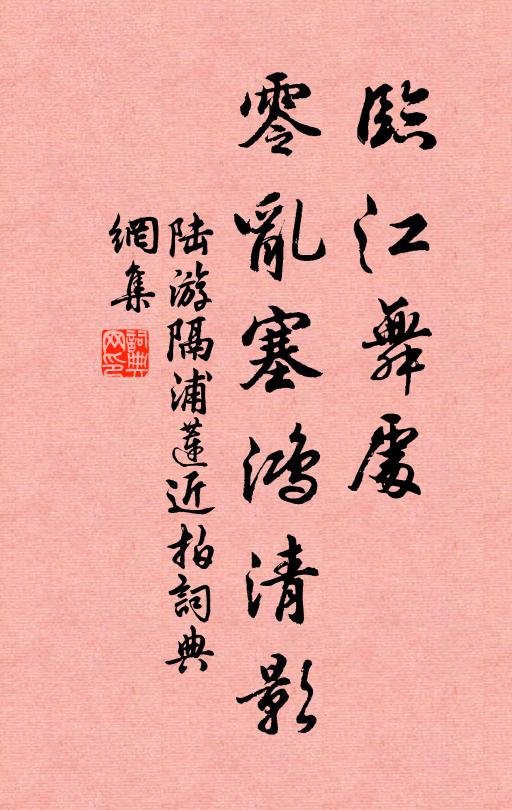 臨江舞處
零亂塞鴻清影
陸游隔浦蓮近拍詞典
網集
詞典
网印